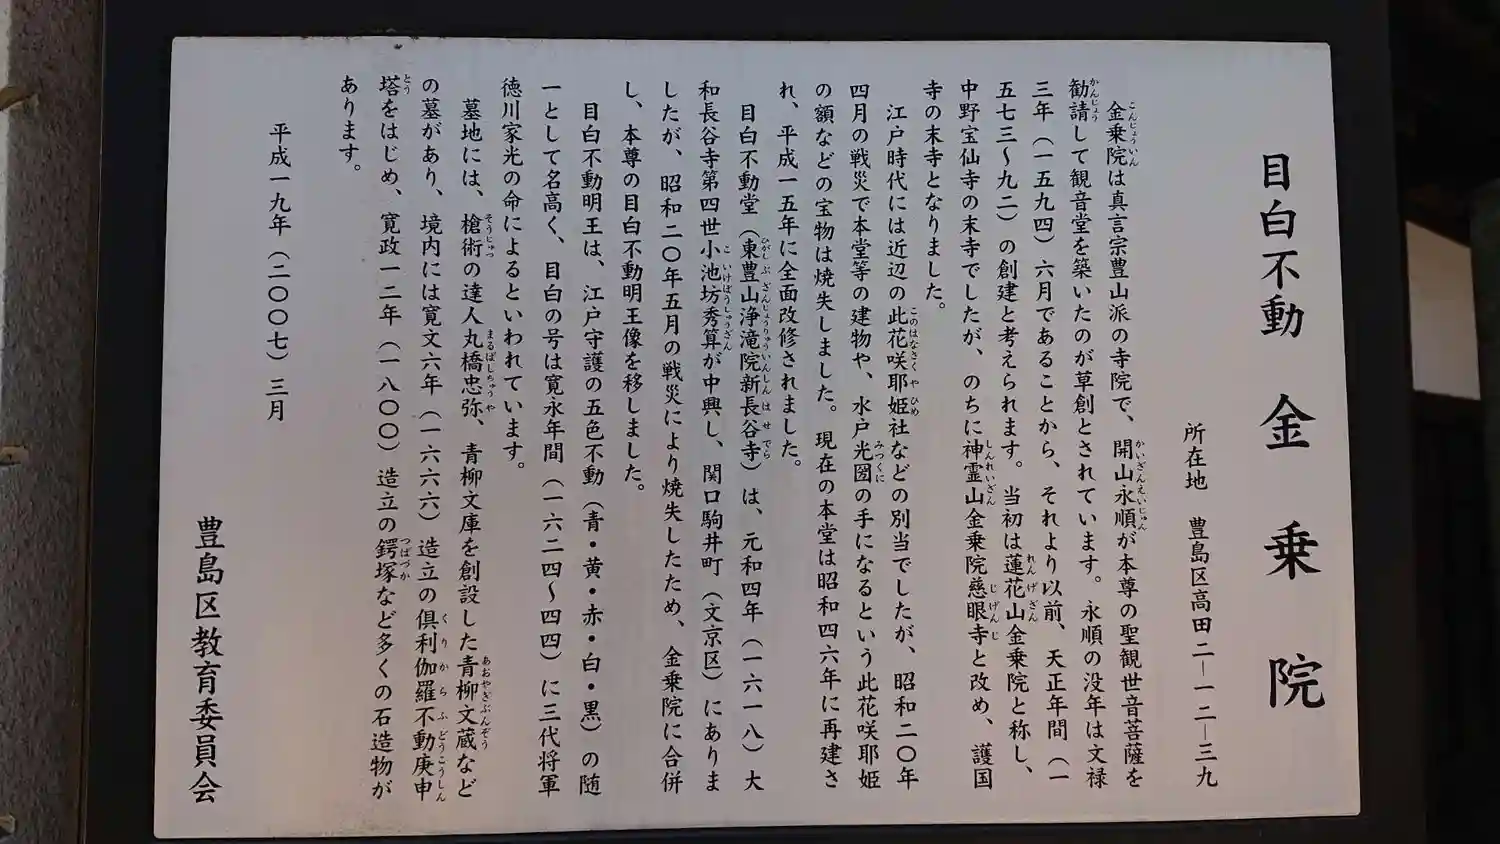 目白不動 金乗院
所在地 豊島区高田二—一二—三九
金乗院は真言宗豊山派の寺院で、開山永順が本尊の聖観世音菩薩を
勧請して観音堂を築いたのが草創とされています。永順の没年は文禄
三年（一五九四）六月であることから、それより以前、天正年間（一
五七三～九二）の創建と考えられます。当初は蓮花山金乗院と称し、
中野宝仙寺の末寺でしたが、のちに神霊山金乗院慈眼寺と改め、護国
寺の末寺となりました。
江戸時代には近辺の此花咲耶姫社などの別当でしたが、昭和二〇年
四月の戦災で本堂等の建物や、水戸光圀の手になるという此花咲耶姫
の額などの宝物は焼失しました。現在の本堂は昭和四六年に再建さ
れ、平成一五年に全面改修されました。
目白不動堂（東豊山浄滝院新長谷寺）は、元和四年（一六一八）大
和長谷寺第四世小池坊秀算が中興し、関口駒井町（文京区）にありま
したが、昭和二〇年五月の戦災により焼失したため、金乗院に合併
し、本尊の目白不動明王像を移しました。
目白不動明王は、江戸守護の五色不動（青・黄・赤・白・黒）の随
一として名高く、目白の号は寛永年間（一六二四～四四）に三代将軍
徳川家光の命によるといわれています。
墓地には、槍術の達人丸橋忠弥、青柳文庫を創設した青柳文蔵など
の墓があり、境内には寛文六年（一六六六）造立の倶利伽羅不動庚申
塔をはじめ、寛政一二年（一八〇〇）造立の鍔塚など多くの石造物が
あります。
平成一九年（二〇〇七）三月
豊島区教育委員会